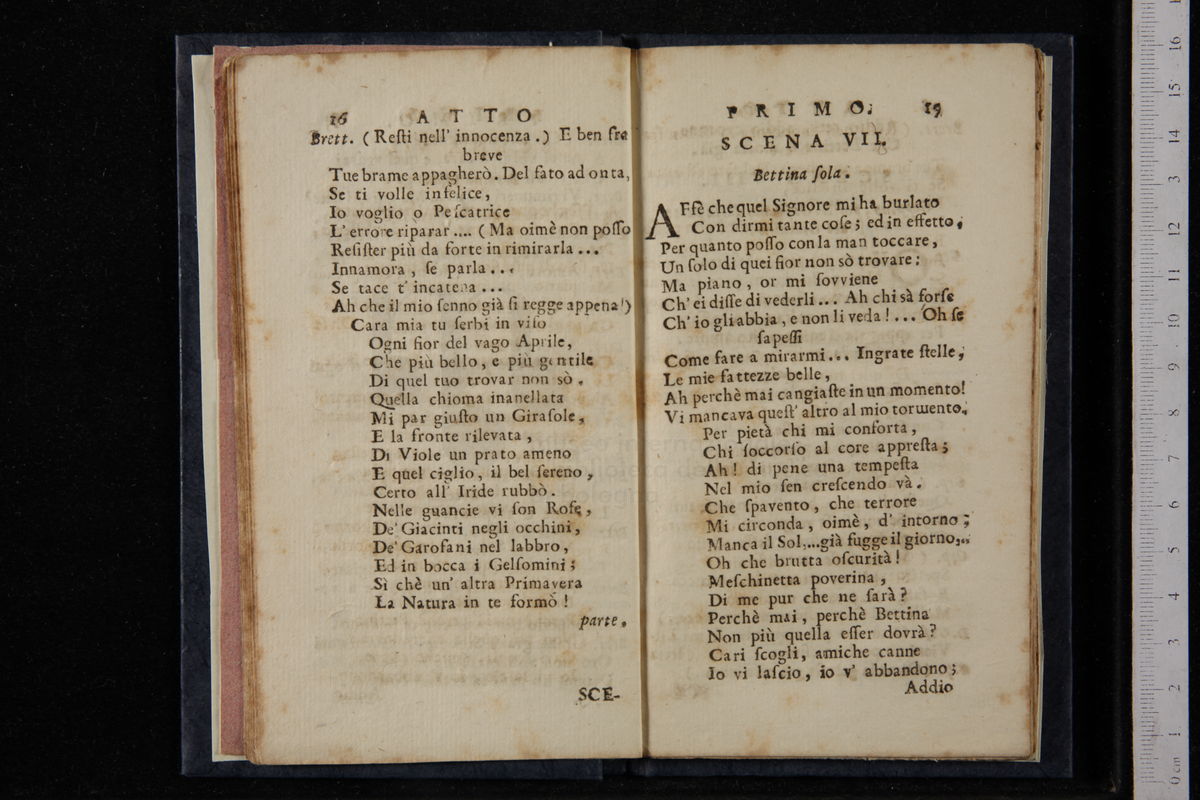 16 ATTO
Brett. (Reſti nell' innocenza.) E ben fra
breve
Tue brame appagherò. Del fato ad onta,
Se ti volle infelice,
Io voglio o Peſcatrice
L' errore riparar .... (Ma oimè non poſſo
Reſiſter più da forte in rimirarla ...
Innamora, ſe parla ...
Se tace t' incatena ...
Ah che il mio ſenno già ſi regge appena!)
Cara mia tu ſerbi in viſo
Ogni fior del vago Aprile,
Che più bello, e più gentile
Di quel tuo trovar non sò.
Quella chioma inanellata
Mi par giuſto un Giraſole,
E la fronte rilevata,
Di Viole un prato ameno
E quel ciglio, il bel ſereno,
Certo all' Iride rubbò.
Nelle guancie vi ſon Roſe,
De' Giacinti negli occhini,
De' Garofani nel labbro,
Ed in bocca i Gelſomini;
Sì chè un' altra Primavera
La Natura in te formò!
parte.
SCE-
PRIMO. 19
SCENA VII.
Bettina ſola.
AFfè che quel Signore mi ha burlato
Con dirmi tante coſe; ed in effetto,
Per quanto poſſo con la man toccare,
Un ſolo di quei fior non sò trovare:
Ma piano, or mi ſovviene
Ch' ei diſſe di vederli ... Ah chi sà forſe
Ch' io gli abbia, e non li veda! .... Oh ſe
ſapeſſi
Come fare a mirarmi ... Ingrate ſtelle,
Le mie fattezze belle,
Ah perchè mai cangiaſte in un momento!
Vi mancava queſt' altro al mio tormento.
Per pietà chi mi conforta,
Chi ſoccorſo al core appreſta;
Ah! di pene una tempeſta
Nel mio ſen creſcendo và.
Che ſpavento, che terrore
Mi circonda, oimè, d' intorno;
Manca il Sol,...già fugge il giorno,..
Oh che brutta oſcurità!
Meſchinetta poverina,
Di me pur che ne ſarà?
Perchè mai, perchè Bettina
Non più quella eſſer dovrà?
Cari ſcogli, amiche canne
Io vi laſcio, io v' abbandono;
Addio